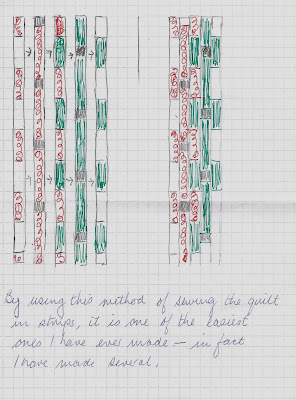 By using this method of sewing the quilt
in strips, it is one of the easiest
ones I have ever made – in fact
I have made several.